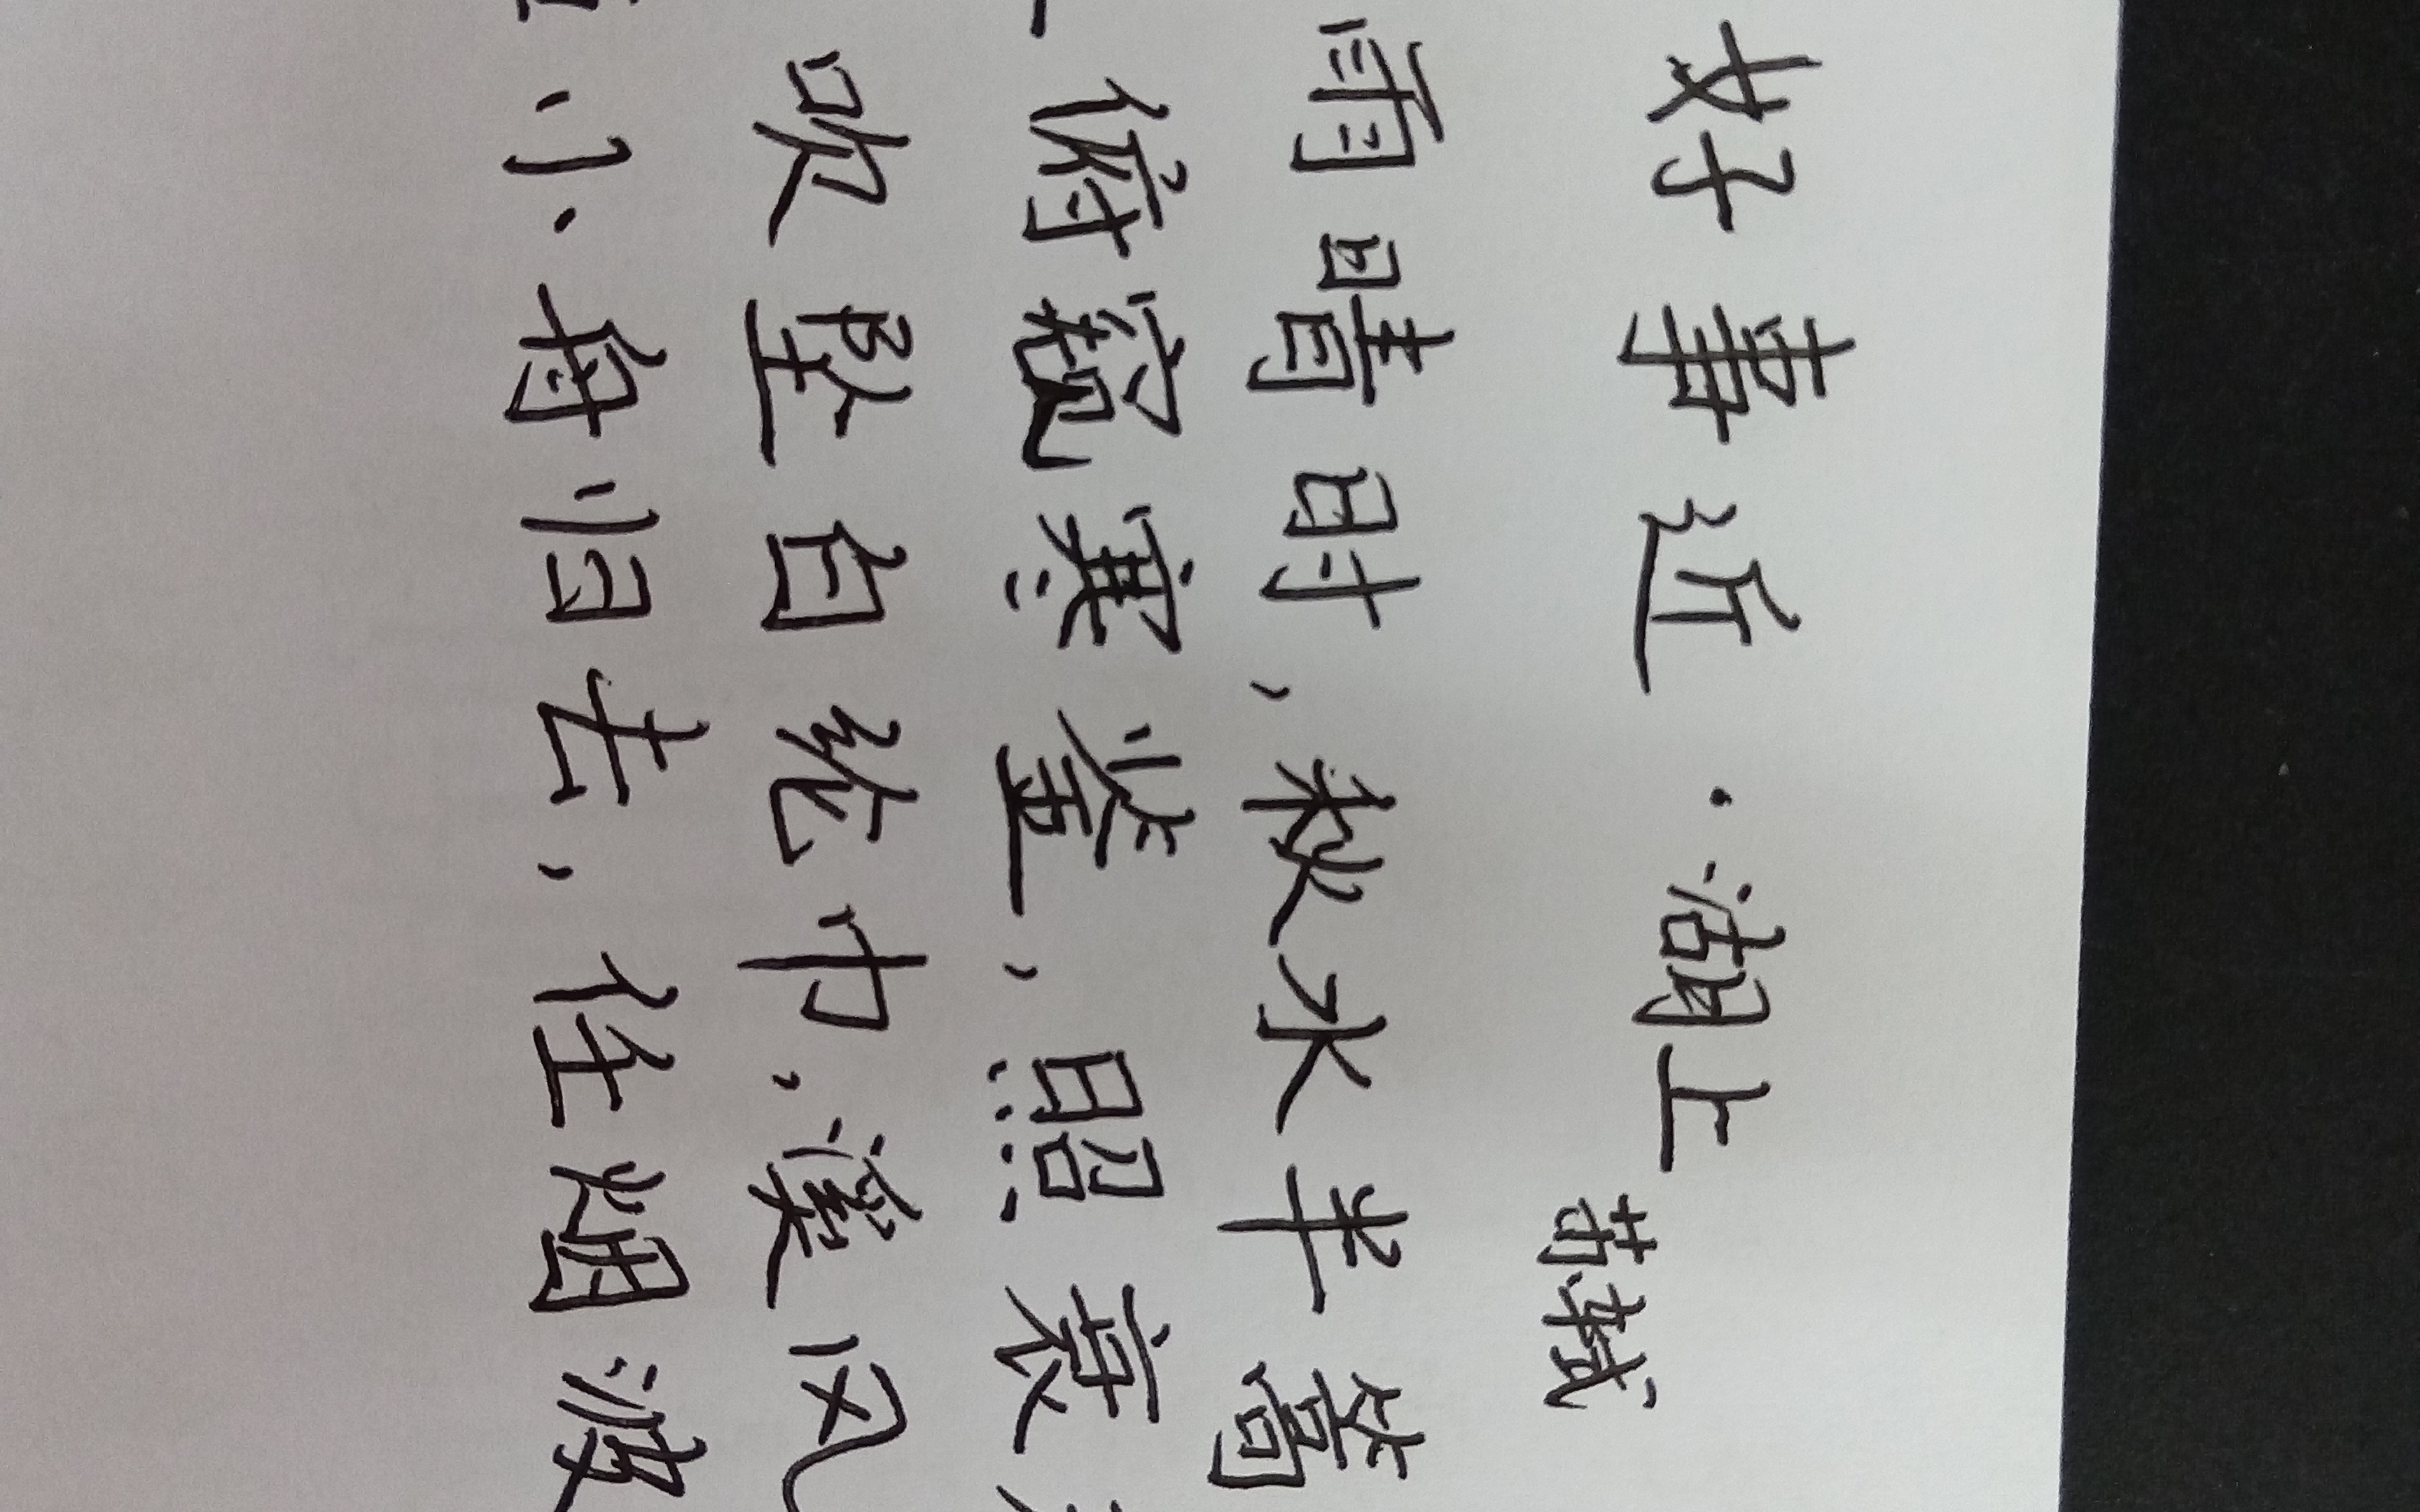 好事近·湖上
苏轼
雨晴时,秋水半篙
俯窥寒鉴,照衰
吹坠白纶巾,溪风
小舟归去,任烟波